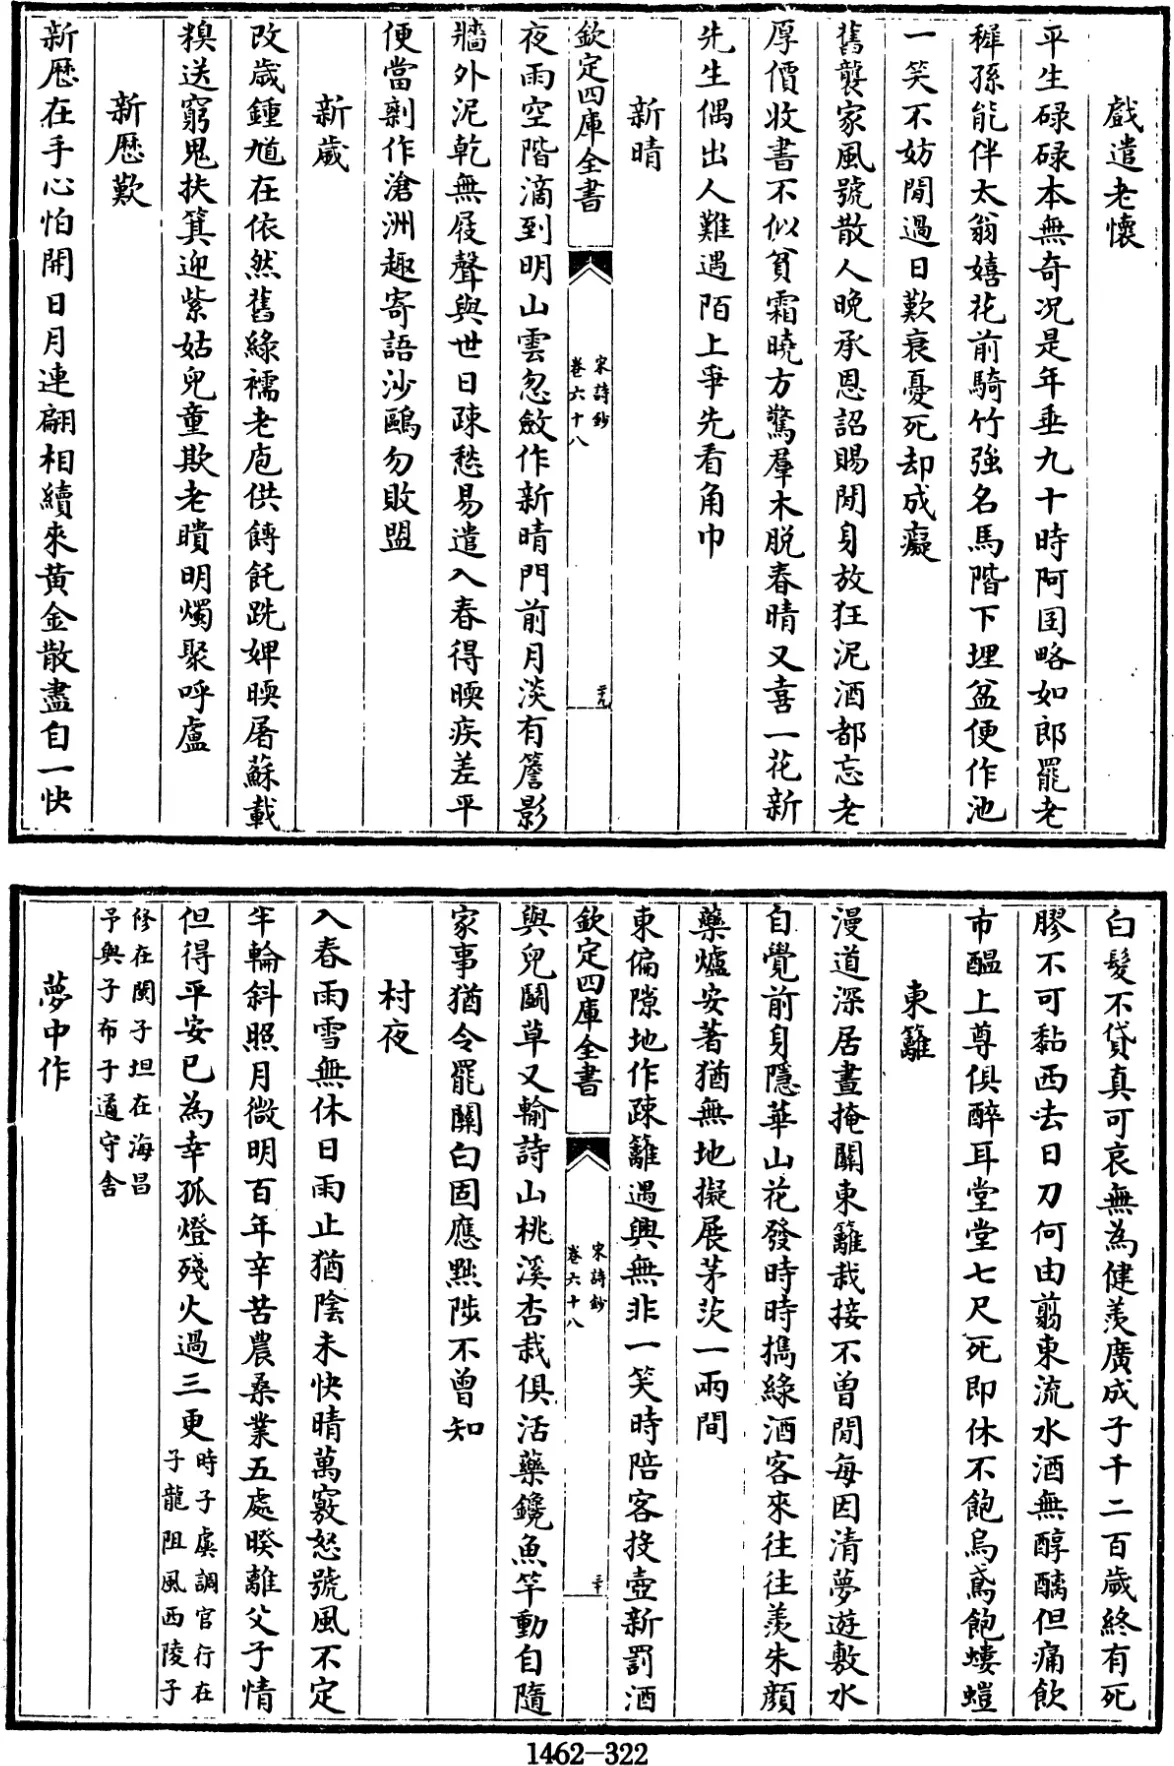 戲遣老懷
平生碌碌本無奇况是年垂九十時阿囝略如郎罷老
穉孫能伴太翁嬉花前騎竹強名馬階下埋盆便作池
一笑不妨閒過日歎衰憂死却成癡
舊襲家風號散人晚承恩詔賜閒身放狂泥酒都忘老
厚價收書不似貧霜曉方驚羣木脱春晴又喜一花新
先生偶出人難遇陌上爭先看角巾
新晴
欽定四庫全書
宋詩鈔
卷六十八
二十九
夜雨空階滴到明山雲忽斂作新晴門前月淡有簷影
牆外泥乾無屐聲與世日疎愁易遣入春得暝疾差平
便當剩作滄洲趣寄語沙鷗勿敗盟
新歲
改歲鍾馗在依然舊綠襦老庖供餺飥跣婢暝屠蘇載
糗送窮鬼扶箕迎紫姑兒童欺老瞶明燭聚呼盧
新歴歎
新歴在手心怕開日月連翩相續來黄金散盡自一快
白髮不貸真可哀無為健羨廣成子千二百歲終有死
膠不可黏西去日刀何由翦東流水酒無醇醨但痛飲
市醖上尊俱醉耳堂堂七尺死即休不飽烏鳶飽螻螘
東籬
漫道深居晝掩關東籬栽接不曾閒每因清夢遊敷水
自覺前身隱華山花發時時搗綠酒客來往往羨朱顔
藥爐安著猶無地擬展茅茨一兩間
東偏隙地作疎籬遇興無非一笑時陪客投壺新罰酒
欽定四庫全書
宋詩鈔
卷六十八
三十
與兒鬭草又輸詩山桃溪杏栽俱活藥鑱魚竿動自隨
家事猶令罷關白固應黜陟不曾知
村夜
入春雨雪無休日雨止猶陰未快晴萬竅怒號風不定
半輪斜照月微明百年辛苦農桑業五處暌離父子情
但得平安已為幸孤燈殘火過三更時子虡調官行在
子龍阻風西陵子
修在閩子坦在海昌
予與子布子遹守舍
夢中作
1462-322